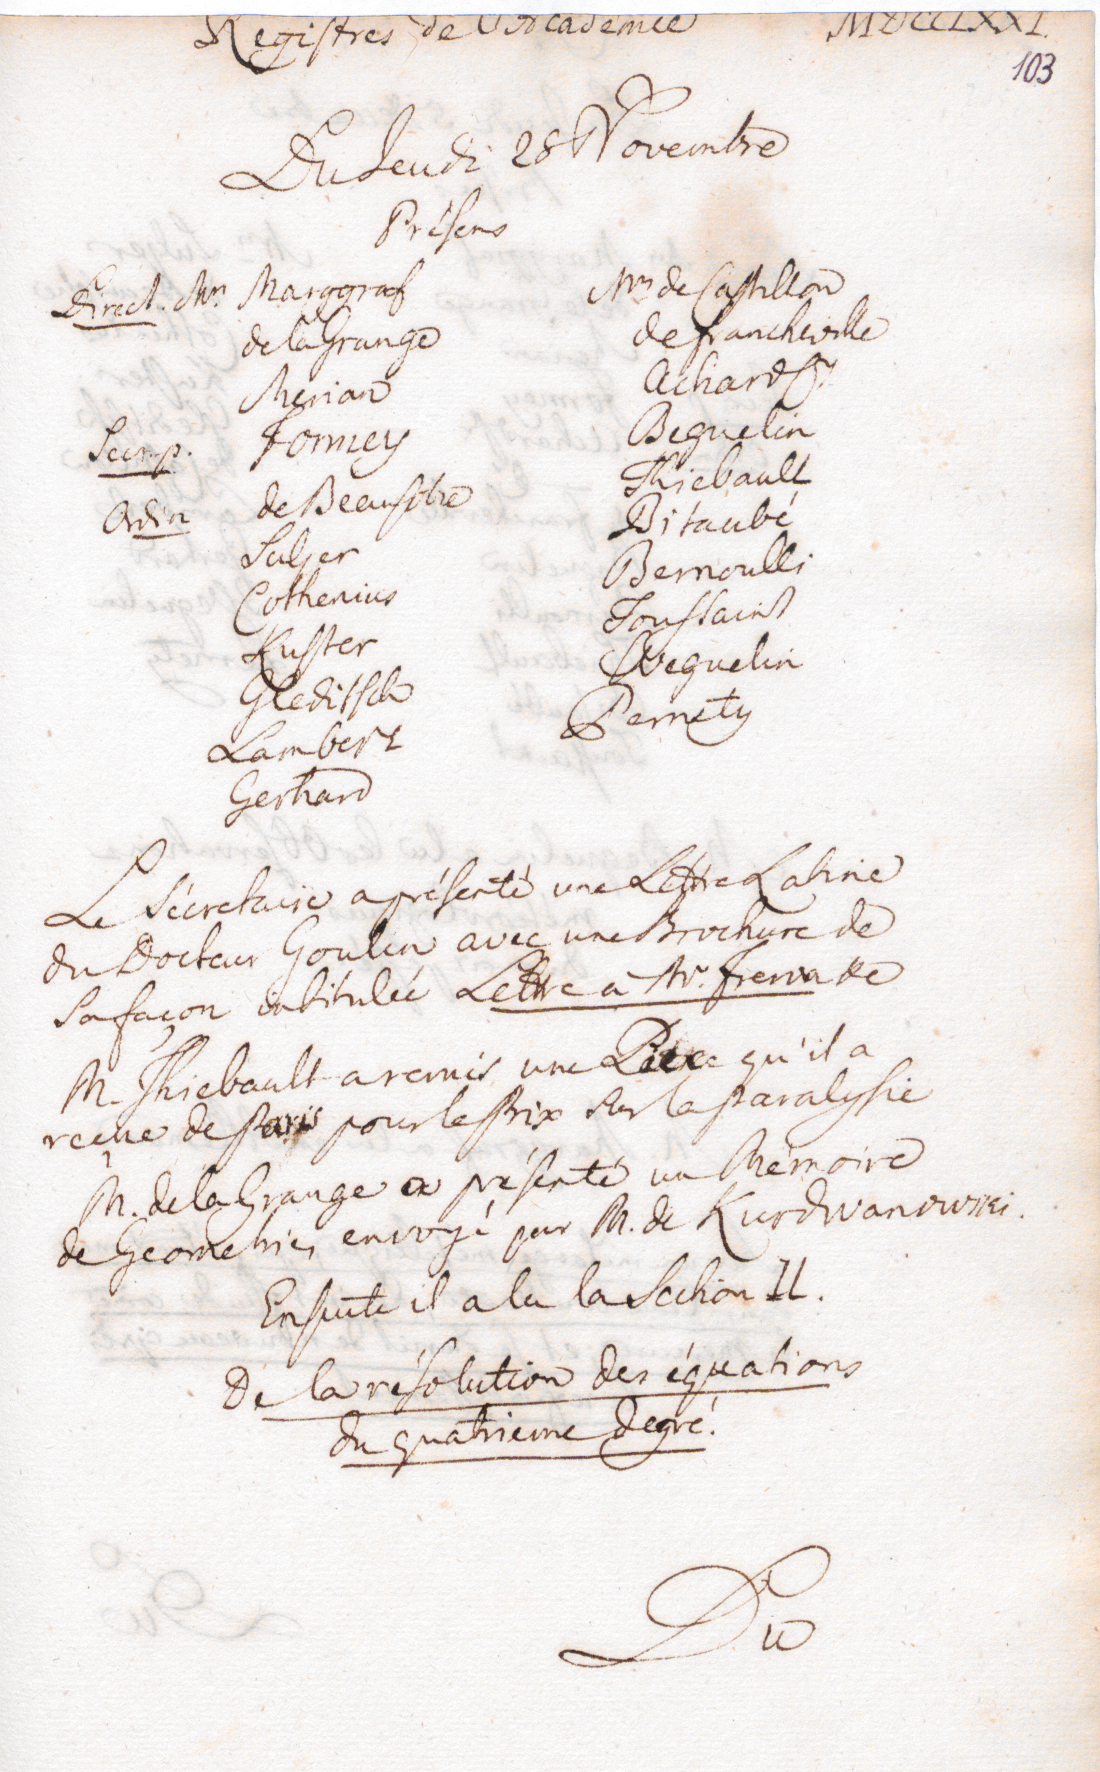 Registres de l'Academie MDCCLXXI.
103
Du Jeudi 28 Novembre
Présens
Direct. Mrs Marggraf
de la Grange
Merian
Secr. p. Formey
Ordin de Beausobre
Sulzer
Cothenius
Kuster
Gleditsch
Lambert
Gerhard
Mrs de Castillon
de francheville
Achard
Beguelin
Thiebault
Bitaubé
Bernoulli
Toussaint
Weguelin
Pernety
Le Sécretaire a présenté une Lettre Latine
du Docteur Goulin avec une Brochure de
sa façon intitulée Lettre à Mr.
M. Thiebault a remis une Piece qu'il a
reçue de Paris pour le Prix sur la Paralysie
M. de la Grange a présenté un Mémoire
de Geometrie, envoyé par M. de Kurdwanowski.
Ensuite il a lu la Section II.
De la résolution des équations
du quatrieme degré.
Du